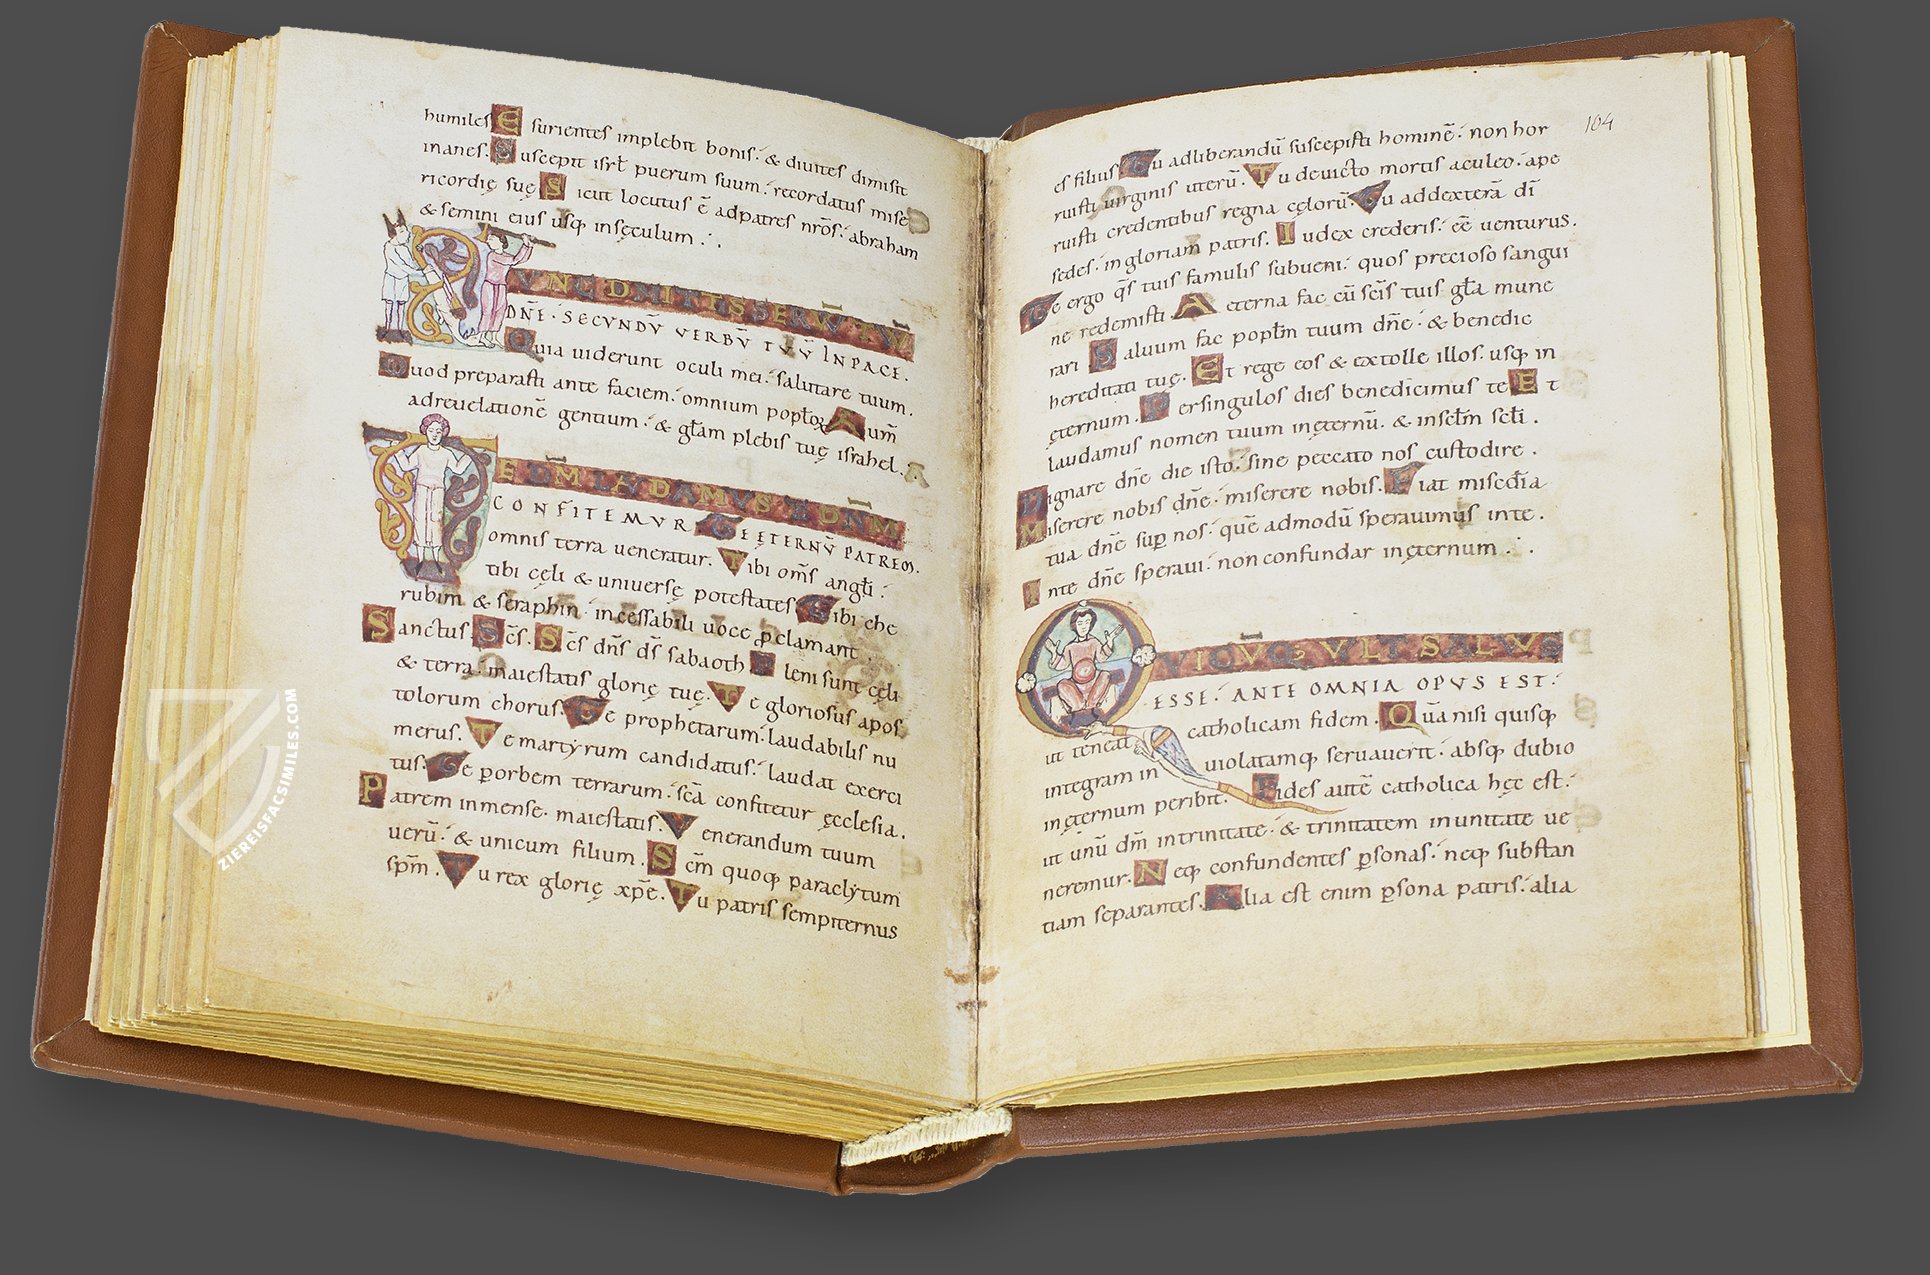 humiles Esurientes implebit bonis. & diuites dimisit
inanes. Suscepit isrl puerum suum. recordatus mise
ricordię suę Sicut locutus ē adpatres nrōs. abraham
& semini eius usq; insęculum.
NUNC DIMITTIS SERVŪ TUŪ
DÑE. SECVNDV̄ VERBV̄ TVV̄ INPACE.
Quia uiderunt oculi mei. salutare tuum.
Quod preparasti ante faciem. omnium poplox Lum̄
adreuelationē gentium. & glam plebis tuę israhel.
TE DM̄ LAUDAMUS TE DÑM
CONFITEMVR TE ETERNV̄ PATREM.
omnis terra ueneratur. Tibi om̄s angli.
tibi cęli & uniuersę potestates Tibi che
rubim & seraphin. incessabili uoce pclamant.
Sanctus. Sc̄s. Sc̄s dn̄s ds̄ sabaoth Pleni sunt cęli
& terra. maiestatis glorię tuę. Te gloriosus apos
tolorum chorus. Te prophetarum. laudabilis nu
merus. Te martyrum candidatus. laudat exerci
tus. Te porbem terrarum. scā confitetur ęcclesia.
Patrem inmense. maiestatis. Venerandum tuum
uerū. & unicum filium. Scm̄ quoq; paraclytum
spm̄. Tu rex glorię xpē. Tu patris sempiternus
104
es filius Tu adliberandū suscepisti hominē. non hor
ruisti uirginis uterū. Tu deuicto mortis aculeo. ape
ruisti credentibus regna cęlorū. Tu addexterā dī
sedes. in gloriam patris. Iudex crederis. eē uenturus.
Te ergo qs̄ tuis famulis subueni. quos precioso sangui
ne redemisti. Aeterna fac cū scīs tuis gla mune
rari Saluum fac poplm tuum dn̄e. & benedic
hereditati tuę. Et rege eos & extolle illos. usq; in
ęternum. Persingulos dies benedicimus te Et
laudamus nomen tuum inęternū. & inseclm secli.
Dignare dn̄e die isto. sine peccato nos custodire.
Miserere nobis dn̄e. miserere nobis. Fiat misedia
tua dn̄e sup nos. quē admodū sperauimus inte.
Inte dn̄e speraui. non confundar inęternum.
QUICUQ; UULT SALUUS
ESSE. ANTE OMNIA OPVS EST.
ut teneat catholicam fidem. Quā nisi quisq;
integram in uiolatamq; seruauerit. absq; dubio
inęternum peribit. Fides autē catholica hęc est.
ut unū dm̄ intrinitate. & trinitatem inunitate ue
neremur. Neq; confundentes psonas. neq; substan
tiam separantes. Alia est enim psona patris. alia
ZIEREISFACSIMILES.COM